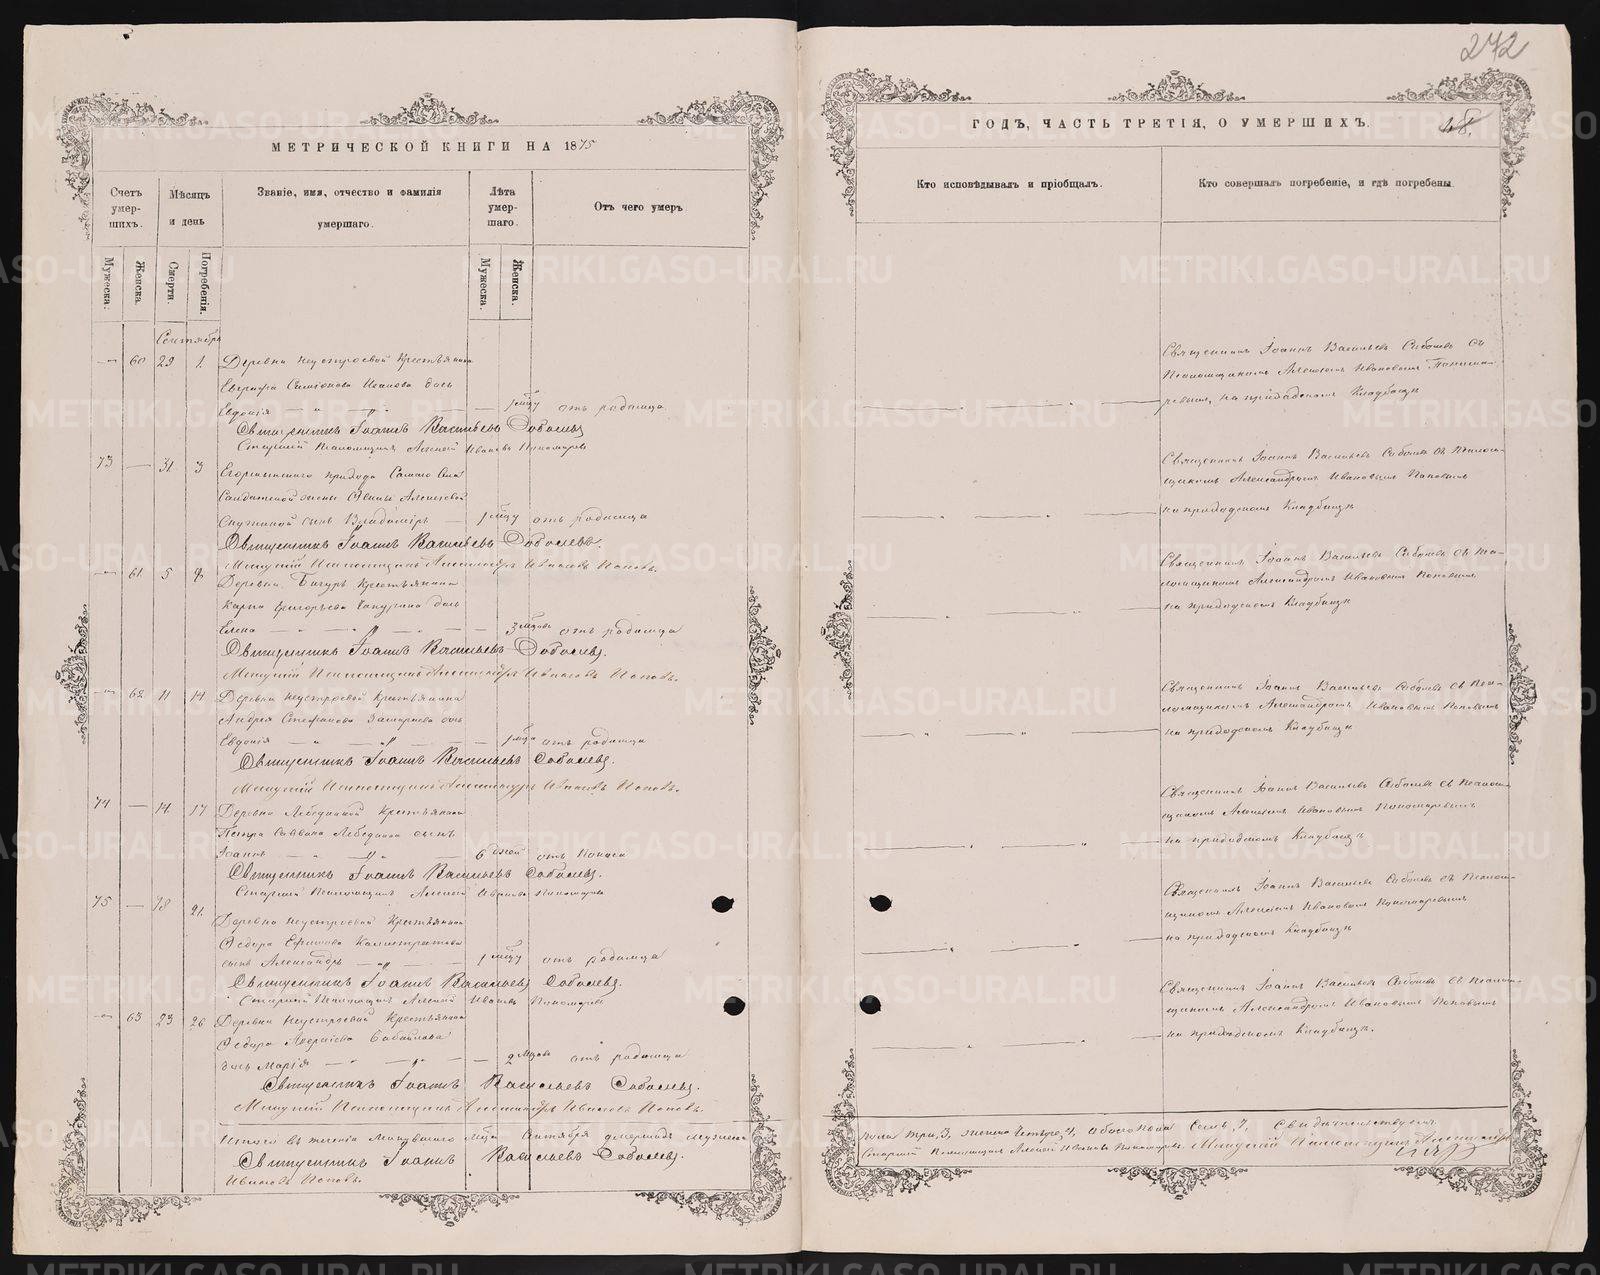 272
МЕТРИЧЕСКОЙ КНИГИ НА 1875
Счетъ умер-шихъ.
Мѣсяцъ и день
Званіе, имя, отчество и фамилія умершаго.
Лѣта умер-шаго.
Отъ чего умеръ
Мужеска.
Женска.
Смерти.
Погребенія.
Мужеска.
Женска.
Сентябрь
60 29 1. Деревни Неустроевой Крестьянина
дочь
Евдокія 1 мцу отъ родимца
Священникъ Іоаннъ Васильевъ Соболевъ
Старшій Псаломщикъ Алексей Ивановъ Пономаревъ
73 31 3 прихода
жены Алексеевой
сынъ Владиміръ 1 мцу отъ родимца
Священникъ Іоаннъ Васильевъ Соболевъ.
Младшій Псаломщикъ Александръ Ивановъ Поповъ.
61 5 Деревни Крестьянина
Карпа Григорьева дочь
Елена 3 отъ родимца
Священникъ Іоаннъ Васильевъ Соболевъ.
Младшій Псаломщикъ Александръ Ивановъ Поповъ.
62 11 14 Деревни Неустроевой Крестьянина
Андрея Стефанова дочь
Евдокія 1 мца отъ родимца
Священникъ Іоаннъ Васильевъ Соболевъ.
Младшій Псаломщикъ Александръ Ивановъ Поповъ.
74 14 17 Деревни Лебедкиной Крестьянина
Петра Саввина Лебедкина сынъ
Іоаннъ 6 дней отъ поноса
Священникъ Іоаннъ Васильевъ Соболевъ.
Старшій Псаломщикъ Алексей Ивановъ Пономаревъ
75 18 21.
Деревни Неустроевой Крестьянина
Федора Ефимова Калистратова
сынъ Александръ 1 мцу отъ родимца
Священникъ Іоаннъ Васильевъ Соболевъ.
Старшій Псаломщикъ Алексей Ивановъ Пономаревъ
63 23 26 Деревни Неустроевой Крестьянина
Федора
дочь Марія 2 отъ родимца
Священникъ Іоаннъ Васильевъ Соболевъ.
Младшій Псаломщикъ Александръ Ивановъ Поповъ.
Итого въ теченіи Минувшаго мца Сентября умершихъ мужеска
Священникъ Іоаннъ Васильевъ Соболевъ.
Ивановъ Поповъ.
ГОДЪ, ЧАСТЬ ТРЕТІЯ, О УМЕРШИХЪ.
48.
Кто исповѣдывалъ и пріобщалъ.
Кто совершалъ погребеніе, и гдѣ погребены
Священникъ Іоаннъ Васильевъ Соболевъ съ
Псаломщикомъ Алексеемъ Ивановымъ Понома-
ревымъ, на приходскомъ Кладбищѣ
Священникъ Іоаннъ Васильевъ Соболевъ съ Псалом-
щикомъ Александромъ Ивановымъ Поповымъ
на приходскомъ Кладбищѣ
Священникъ Іоаннъ Васильевъ Соболевъ съ Пса-
ломщикомъ Александромъ Ивановымъ Поповымъ
на приходскомъ Кладбищѣ
Священникъ Іоаннъ Васильевъ Соболевъ съ Пса-
ломщикомъ Александромъ Ивановымъ Поповымъ
на приходскомъ Кладбищѣ
Священникъ Іоаннъ Васильевъ Соболевъ съ Псалом-
щикомъ Алексеемъ Ивановымъ Пономаревымъ
на приходскомъ Кладбищѣ
Священникъ Іоаннъ Васильевъ Соболевъ съ Псалом-
щикомъ Алексеемъ Ивановымъ Пономаревымъ
на приходскомъ Кладбищѣ
Священникъ Іоаннъ Васильевъ Соболевъ съ Псалом-
щикомъ Александромъ Ивановымъ Поповымъ
на приходскомъ Кладбищѣ.
пола три, 3, женска Четыре, 4, обоего пола Семь, 7,
Старшій Псаломщикъ Алексей Ивановъ Пономаревъ. Младшій Псаломщикъ Александръ
METRIKI.GASO-URAL.RU